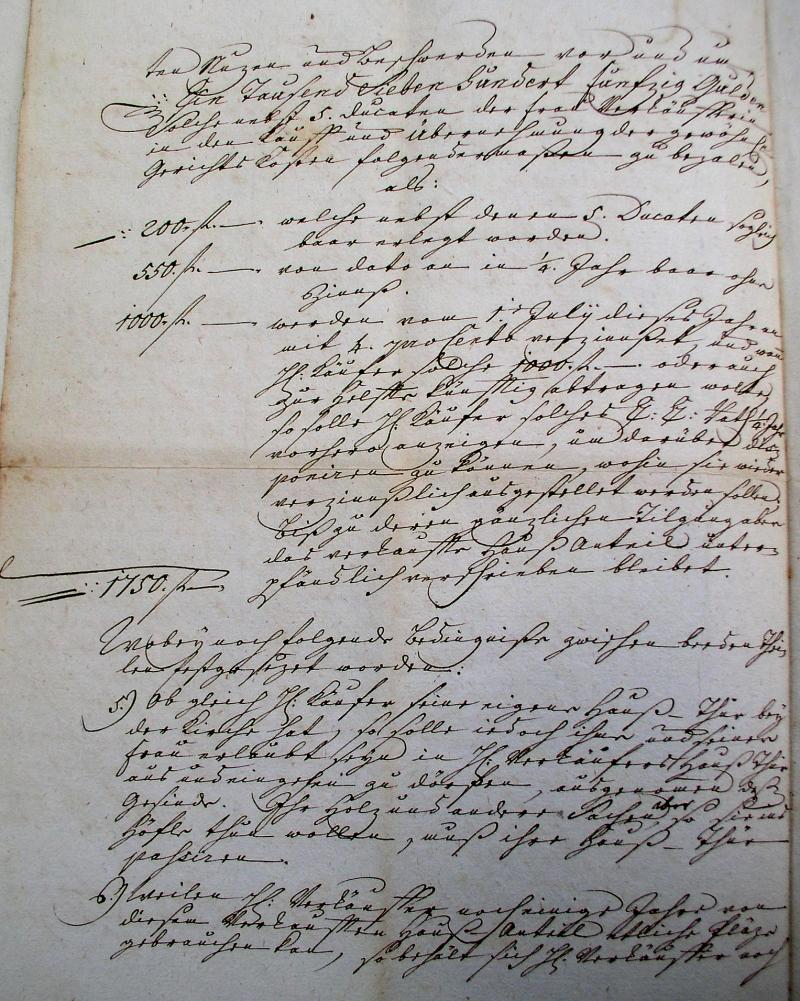 ten Nuzen und Beschwerden vor und um
Ein Tausend Sieben hundert funfzig Gulden
Solche nebst 5. Ducaten der Frau Verkäufferin
in den Kauff und Übernehmung der gewöhnl:
Gerichts Kosten folgendermaßen zu bezalen,
als:
200. fl. — welche nebst denen 5. Ducaten sogleich
baar erlegt worden.
550. fl. — von dato an in 1/4. Jahr baar ohne
Zinnß.
1000. fl. — werden vom 1t July dieses Jahr an
mit 4. pro Cento verzinnßet, und wann
H: Käufer solche 1000. fl. — oder auch
zur Helffte künfftig abtragen wolte,
so solle H: Käufer solches 1/4 Jahr
vorhero anzeigen, um darüber dis-
poniren zu können, wohin sie wieder
verzinnßlich ausgestellet werden sollen,
Biß zu deren gänzlichen Tilgung aber
das verkauffte Hauß Antheil unter-
1750. fl. — pfändlich verschrieben bleibet.
Wobey noch folgende Bedingniße zwischen beeden Thei-
len festgesezet worden:
5.) Ob gleich H: Käufer seine eigene Hauß-Thür bey
der Kirche hat, so solle iedoch ihm und seiner
Frau erlaubt seyn in H: Verkäufers Hauß Thür
aus und eingehen zu dörffen, ausgenomen deß
Gesinde. Ihr Holz und andere Sachen aber so sie ins
Höfle thun wollen, muß ihre Hauß-Thür
paßiren.
6.) weilen H: Verkäuffer noch einige Jahre von
diesem Verkaufften Hauß Antheil etliche Pläze
gebrauchen kan, so behält sich H: Verkäuffer noch